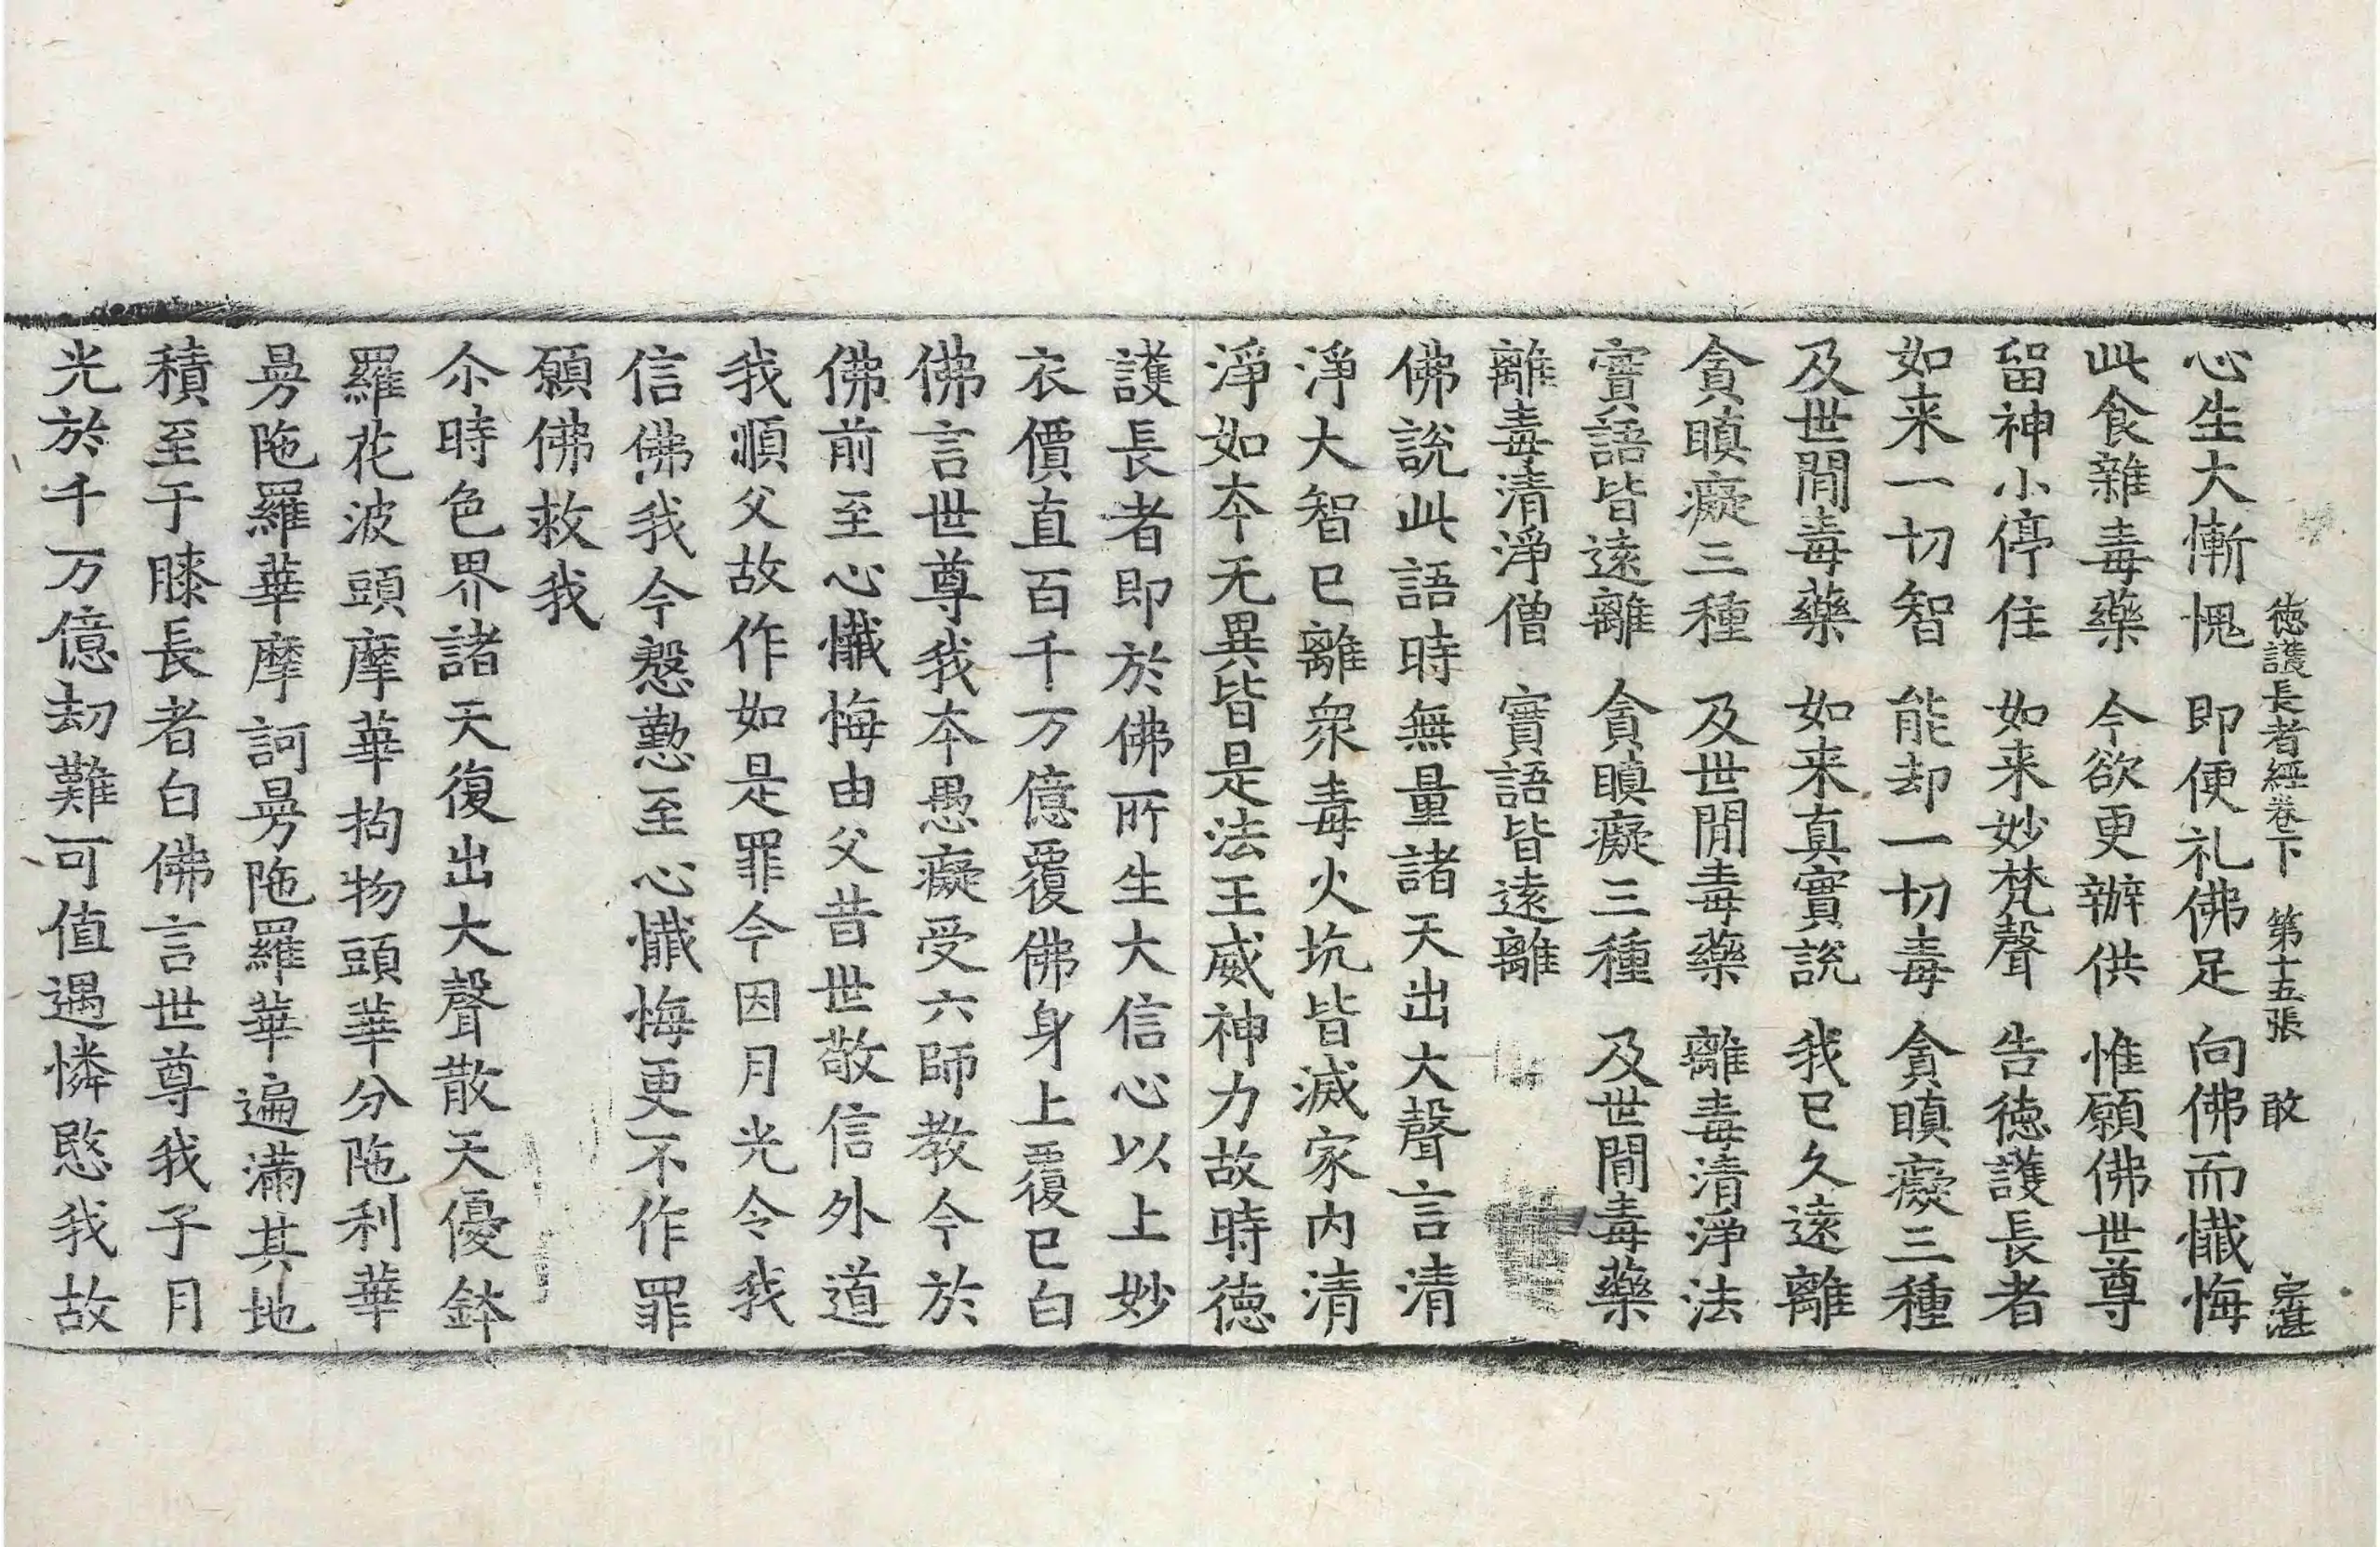 德護長者經卷下 第十五張 敢
心生大慚愧 即便礼佛足 向佛而懺悔
此食雜毒藥 今欲更辦供 惟願佛世尊
留神小停住 如来妙梵聲 告德護長者
如来一切智 能却一切毒 貪瞋癡三種
及世間毒藥 如来真實說 我已久遠離
貪瞋癡三種 及世間毒藥 離毒清淨法
實語皆遠離 貪瞋癡三種 及世間毒藥
離毒清淨僧 實語皆遠離
佛說此語時無量諸天出大聲言清
淨大智已離衆毒火坑皆滅家内清
淨如夲无異皆是法王威神力故時德
護長者即於佛所生大信心以上妙
衣價直百千万億覆佛身上覆已白
佛言世尊我夲愚癡受六師教今於
佛前至心懺悔由父昔世敬信外道
我順父故作如是罪今因月光令我
信佛我今慇懃至心懺悔更不作罪
願佛救我
尒時色界諸天復出大聲散天優鉢
羅花波頭摩華拘物頭華分陁利華
曼陁羅華摩訶曼陁羅華遍滿其地
積至于膝長者白佛言世尊我子月
光於千万億劫難可值遇憐愍我故